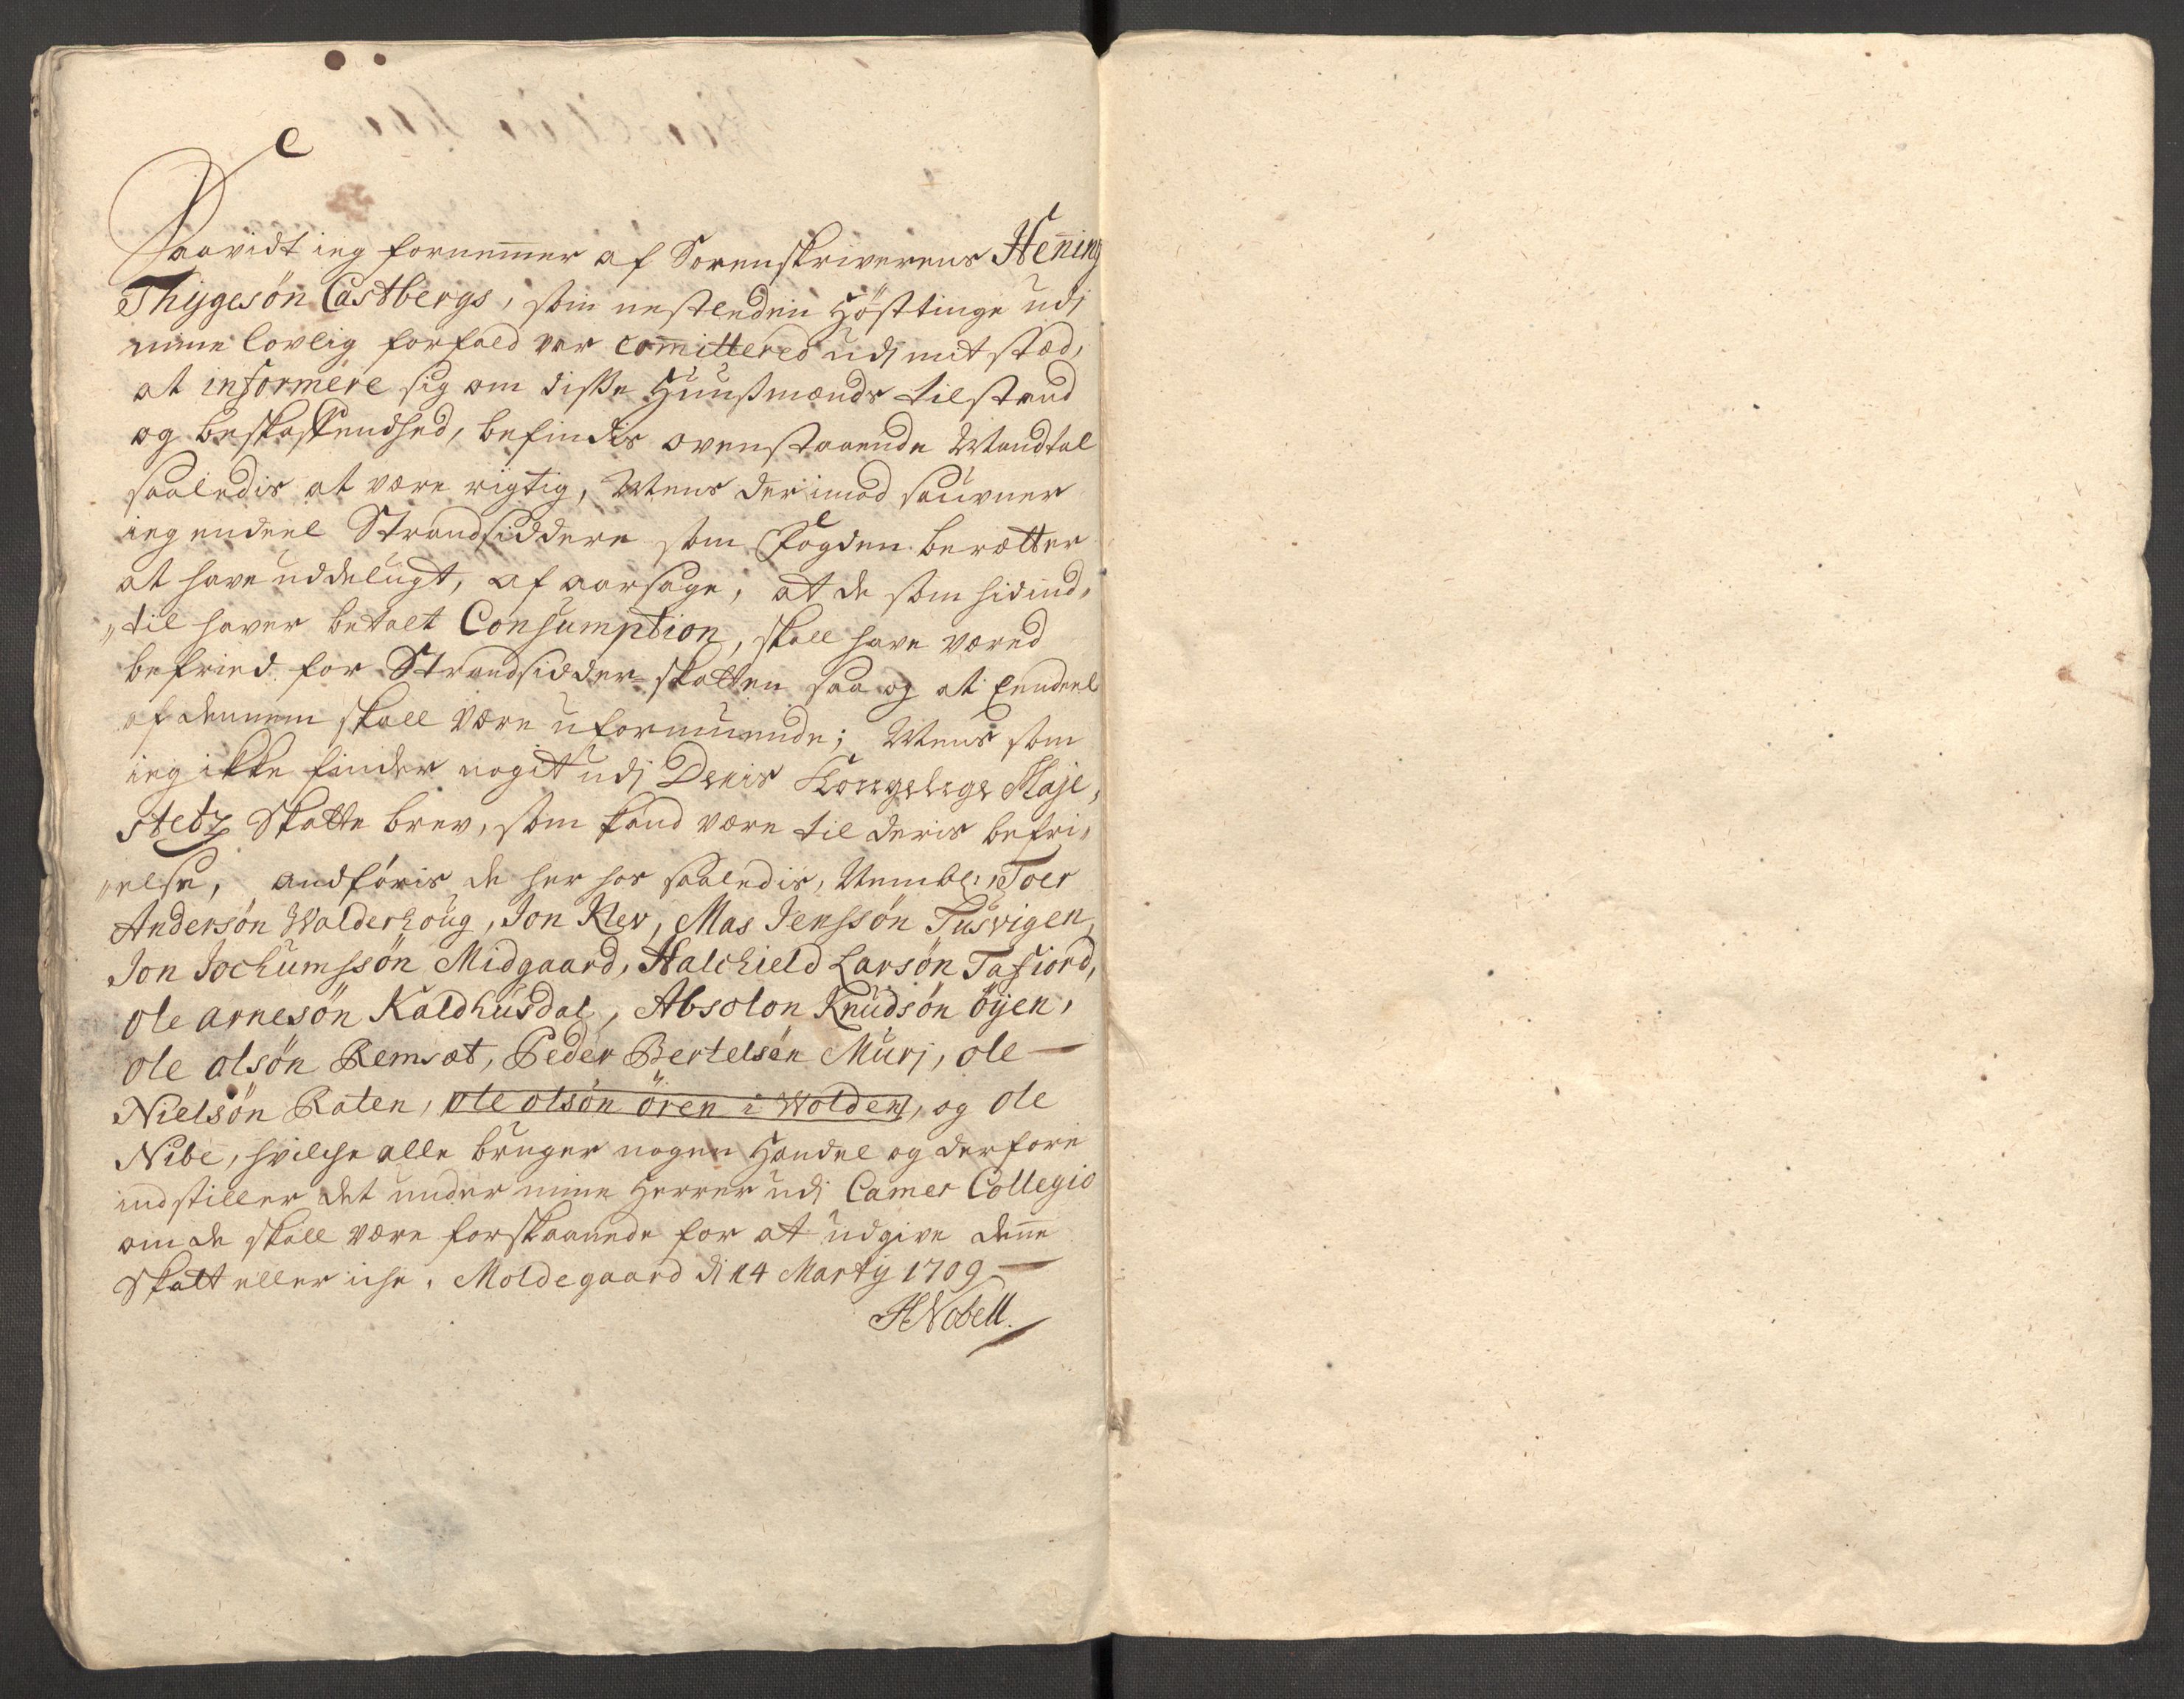 Saavidt ieg fornemmer af Sorenskriverens Hening
Thygesön Castbergs, som nestleden Hösttinge udj
mine lovlig forfald var committered udj mit sted,
at informere sig om disse Huusmænds tilstand
og beskaffendhed, befindis ovenstaaende Mandtal
saaledis at være rigtig, Mens der imod saufner
ieg endeel Strandsiddere som Fogden beretter
at have uddelugt, af aarsage, at de som hidind,,
,,til haver betalt Consumption, skall have vered
befried for Strandsidder-skatten saa og at Eendeel
af dennem skall være uformuende; Mens som
ieg ikke finder nogit udj Deris Kongelige Maje,,
stetz Skatte brev, som kand være til deris befri,,
,,else, andføris de her hos saaledis, Nembl: Toer
Andersön Walderhoug, Jon Klev, Mas Jenssön Tusvigen,
Jon Jochumssön Midgaard, Halchield Larsön Tafiord,
ole arnesön Kaldhusdal, Absolon Knudsön öyen,
ole olsön Remsæt, Peder Bertelsen Murj, ole
Nielsön Raten, ole olsön ören i Wolden, og ole
Nibe, hvilche alle bruger nogen Handel og derfore
indstiller det under mine Herrer udj Camer Collegio
om de skall være forskaanede for at udgive denne
Skatt eller iche. Moldegaard d: 14 Marty 1709
HNobell.